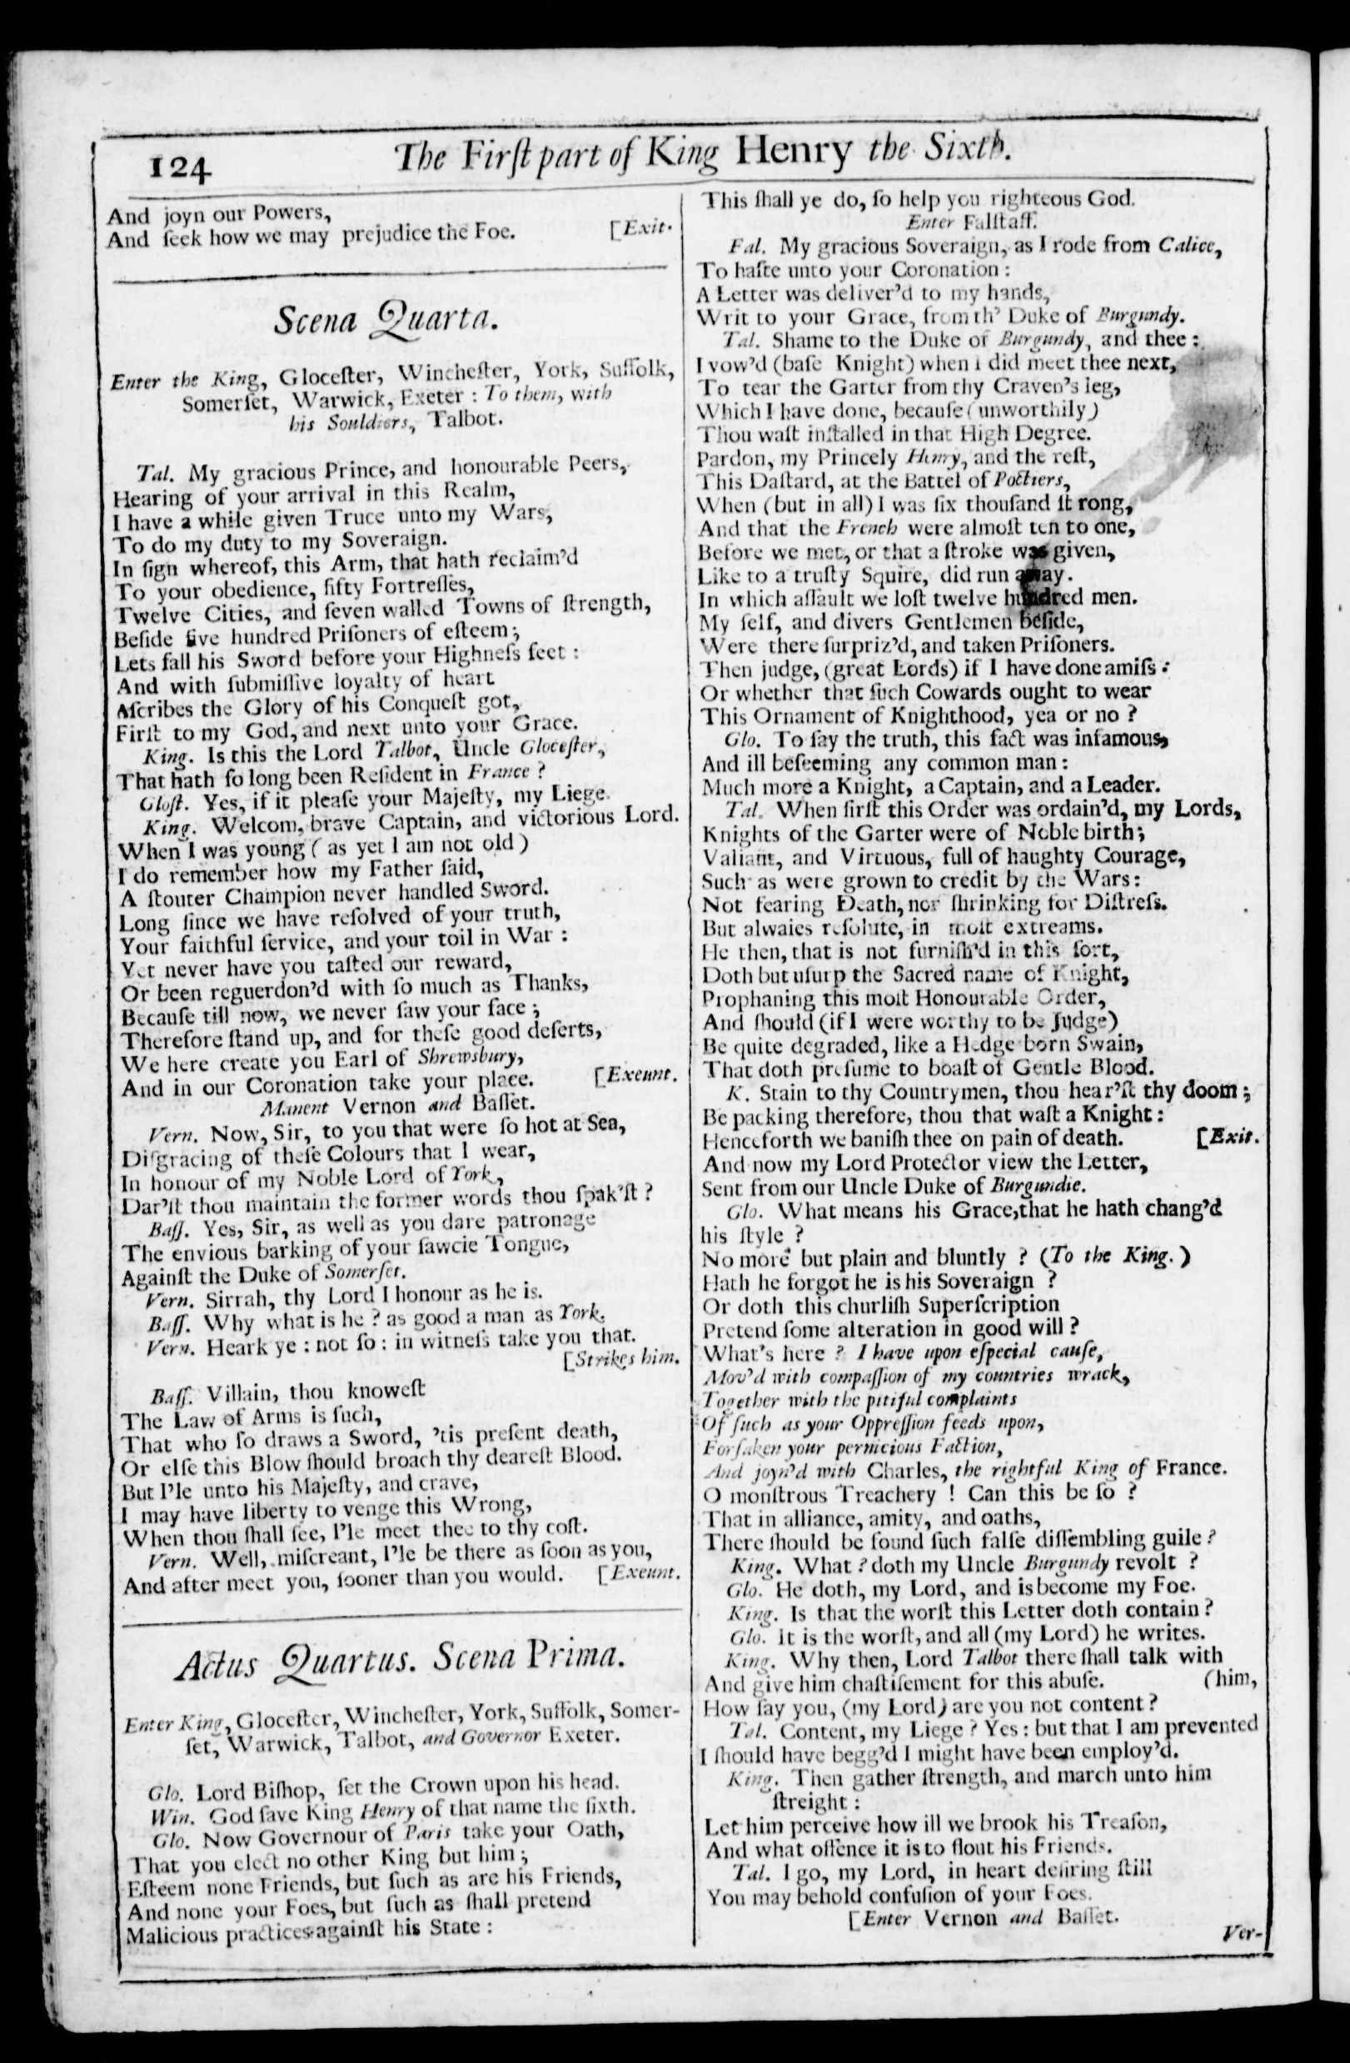 124
The Firſt part of King Henry the Sixth.
And joyn our Powers,
And ſeek how we may prejudice the Foe. [Exit.
Scena Quarta.
Enter the King, Gloceſter, Wincheſter, York, Suffolk,
Somerſet, Warwick, Exeter : To them, with
his Souldiers, Talbot.
Tal. My gracious Prince, and honourable Peers,
Hearing of your arrival in this Realm,
I have a while given Truce unto my Wars,
To do my duty to my Soveraign.
In ſign whereof, this Arm, that hath reclaim'd
To your obedience, fifty Fortreſſes,
Twelve Cities, and ſeven walled Towns of ſtrength,
Beſide five hundred Priſoners of eſteem;
Lets fall his Sword before your Highneſs feet :
And with ſubmiſſive loyalty of heart
Aſcribes the Glory of his Conqueſt got,
Firſt to my God, and next unto your Grace.
King. Is this the Lord Talbot, Uncle Gloceſter,
That hath ſo long been Reſident in France ?
Gloſt. Yes, if it pleaſe your Majeſty, my Liege.
King. Welcom, brave Captain, and victorious Lord.
When I was young ( as yet I am not old )
I do remember how my Father ſaid,
A ſtouter Champion never handled Sword.
Long ſince we have reſolved of your truth,
Your faithful ſervice, and your toil in War :
Yet never have you taſted our reward,
Or been reguerdon'd with ſo much as Thanks,
Becauſe till now, we never ſaw your face ;
Therefore ſtand up, and for theſe good deſerts,
We here create you Earl of Shrewsbury,
And in our Coronation take your place. [Exeunt.
Manent Vernon and Baſſet.
Vern. Now, Sir, to you that were ſo hot at Sea,
Diſgracing of theſe Colours that I wear,
In honour of my Noble Lord of York,
Dar'ſt thou maintain the former words thou ſpak'ſt ?
Baſſ. Yes, Sir, as well as you dare patronage
The envious barking of your ſawcie Tongue,
Againſt the Duke of Somerſet.
Vern. Sirrah, thy Lord I honour as he is.
Baſſ. Why what is he ? as good a man as York.
Vern. Heark ye : not ſo : in witneſs take you that.
[Strikes him.
Baſſ. Villain, thou knoweſt
The Law of Arms is ſuch,
That who ſo draws a Sword, 'tis preſent death,
Or elſe this Blow ſhould broach thy deareſt Blood.
But I'le unto his Majeſty, and crave,
I may have liberty to venge this Wrong,
When thou ſhall ſee, I'le meet thee to thy coſt.
Vern. Well, miſcreant, I'le be there as ſoon as you,
And after meet you, ſooner than you would. [Exeunt.
Actus Quartus. Scena Prima.
Enter King, Gloceſter, Wincheſter, York, Suffolk, Somer-
ſet, Warwick, Talbot, and Governor Exeter.
Glo. Lord Biſhop, ſet the Crown upon his head.
Win. God ſave King Henry of that name the ſixth.
Glo. Now Governour of Paris take your Oath,
That you elect no other King but him ;
Eſteem none Friends, but ſuch as are his Friends,
And none your Foes, but ſuch as ſhall pretend
Malicious practices againſt his State :
This ſhall ye do, ſo help you righteous God.
Enter Falſtaff.
Fal. My gracious Soveraign, as I rode from Calice,
To haſte unto your Coronation :
A Letter was deliver'd to my hands,
Writ to your Grace, from th' Duke of Burgundy.
Tal. Shame to the Duke of Burgundy, and thee :
I vow'd (baſe Knight) when i did meet thee next,
To tear the Garter from thy Craven's leg,
Which I have done, becauſe ( unworthily )
Thou waſt inſtalled in that High Degree.
Pardon, my Princely Henry, and the reſt,
This Daſtard, at the Battel of Poictiers,
When (but in all) I was ſix thouſand ſt rong,
And that the French were almoſt ten to one,
Before we met, or that a ſtroke was given,
Like to a truſty Squire, did run away.
In which aſſault we loſt twelve hundred men.
My ſelf, and divers Gentlemen beſide,
Were there ſurpriz'd, and taken Priſoners.
Then judge, (great Lords) if I have done amiſs :
Or whether that ſuch Cowards ought to wear
This Ornament of Knighthood, yea or no ?
Glo. To ſay the truth, this fact was infamous,
And ill beſeeming any common man :
Much more a Knight, a Captain, and a Leader.
Tal. When firſt this Order was ordain'd, my Lords,
Knights of the Garter were of Noble birth;
Valiant, and Virtuous, full of haughty Courage,
Such as were grown to credit by the Wars :
Not fearing Death, nor ſhrinking for Diſtreſs.
But alwaies reſolute, in moſt extreams.
He then, that is not furniſh'd in this ſort,
Doth but uſurp the Sacred name of Knight,
Prophaning this moſt Honourable Order,
And ſhould (if I were worthy to be Judge)
Be quite degraded, like a Hedge born Swain,
That doth preſume to boaſt of Gentle Blood.
K. Stain to thy Countrymen, thou hear'ſt thy doom ;
Be packing therefore, thou that waſt a Knight :
Henceforth we baniſh thee on pain of death. [Exit.
And now my Lord Protector view the Letter,
Sent from our Uncle Duke of Burgundie.
Glo. What means his Grace, that he hath chang'd
his ſtyle ?
No more but plain and bluntly ? (To the King. )
Hath he forgot he is his Soveraign ?
Or doth this churliſh Superſcription
Pretend ſome alteration in good will ?
What's here ? I have upon eſpecial cauſe,
Mov'd with compaſſion of my countries wrack,
Together with the pitiful complaints
Of ſuch as your Oppreſſion feeds upon,
Forſaken your pernicious Faction,
And joyn'd with Charles, the rightful King of France.
O monſtrous Treachery ! Can this be ſo ?
That in alliance, amity, and oaths,
There ſhould be found ſuch falſe diſſembling guile ?
King. What ? doth my Uncle Burgundy revolt ?
Glo. He doth, my Lord, and is become my Foe.
King. Is that the worſt this Letter doth contain ?
Glo. It is the worſt, and all (my Lord) he writes.
King. Why then, Lord Talbot there ſhall talk with
And give him chaſtiſement for this abuſe. (him,
How ſay you, (my Lord) are you not content ?
Tal. Content, my Liege ? Yes : but that I am prevented
I ſhould have begg'd I might have been employ'd.
King. Then gather ſtrength, and march unto him
ſtreight :
Let him perceive how ill we brook his Treaſon,
And what offence it is to flout his Friends.
Tal. I go, my Lord, in heart deſiring ſtill
You may behold confuſion of your Foes.
[Enter Vernon and Baſſet.
Ver-